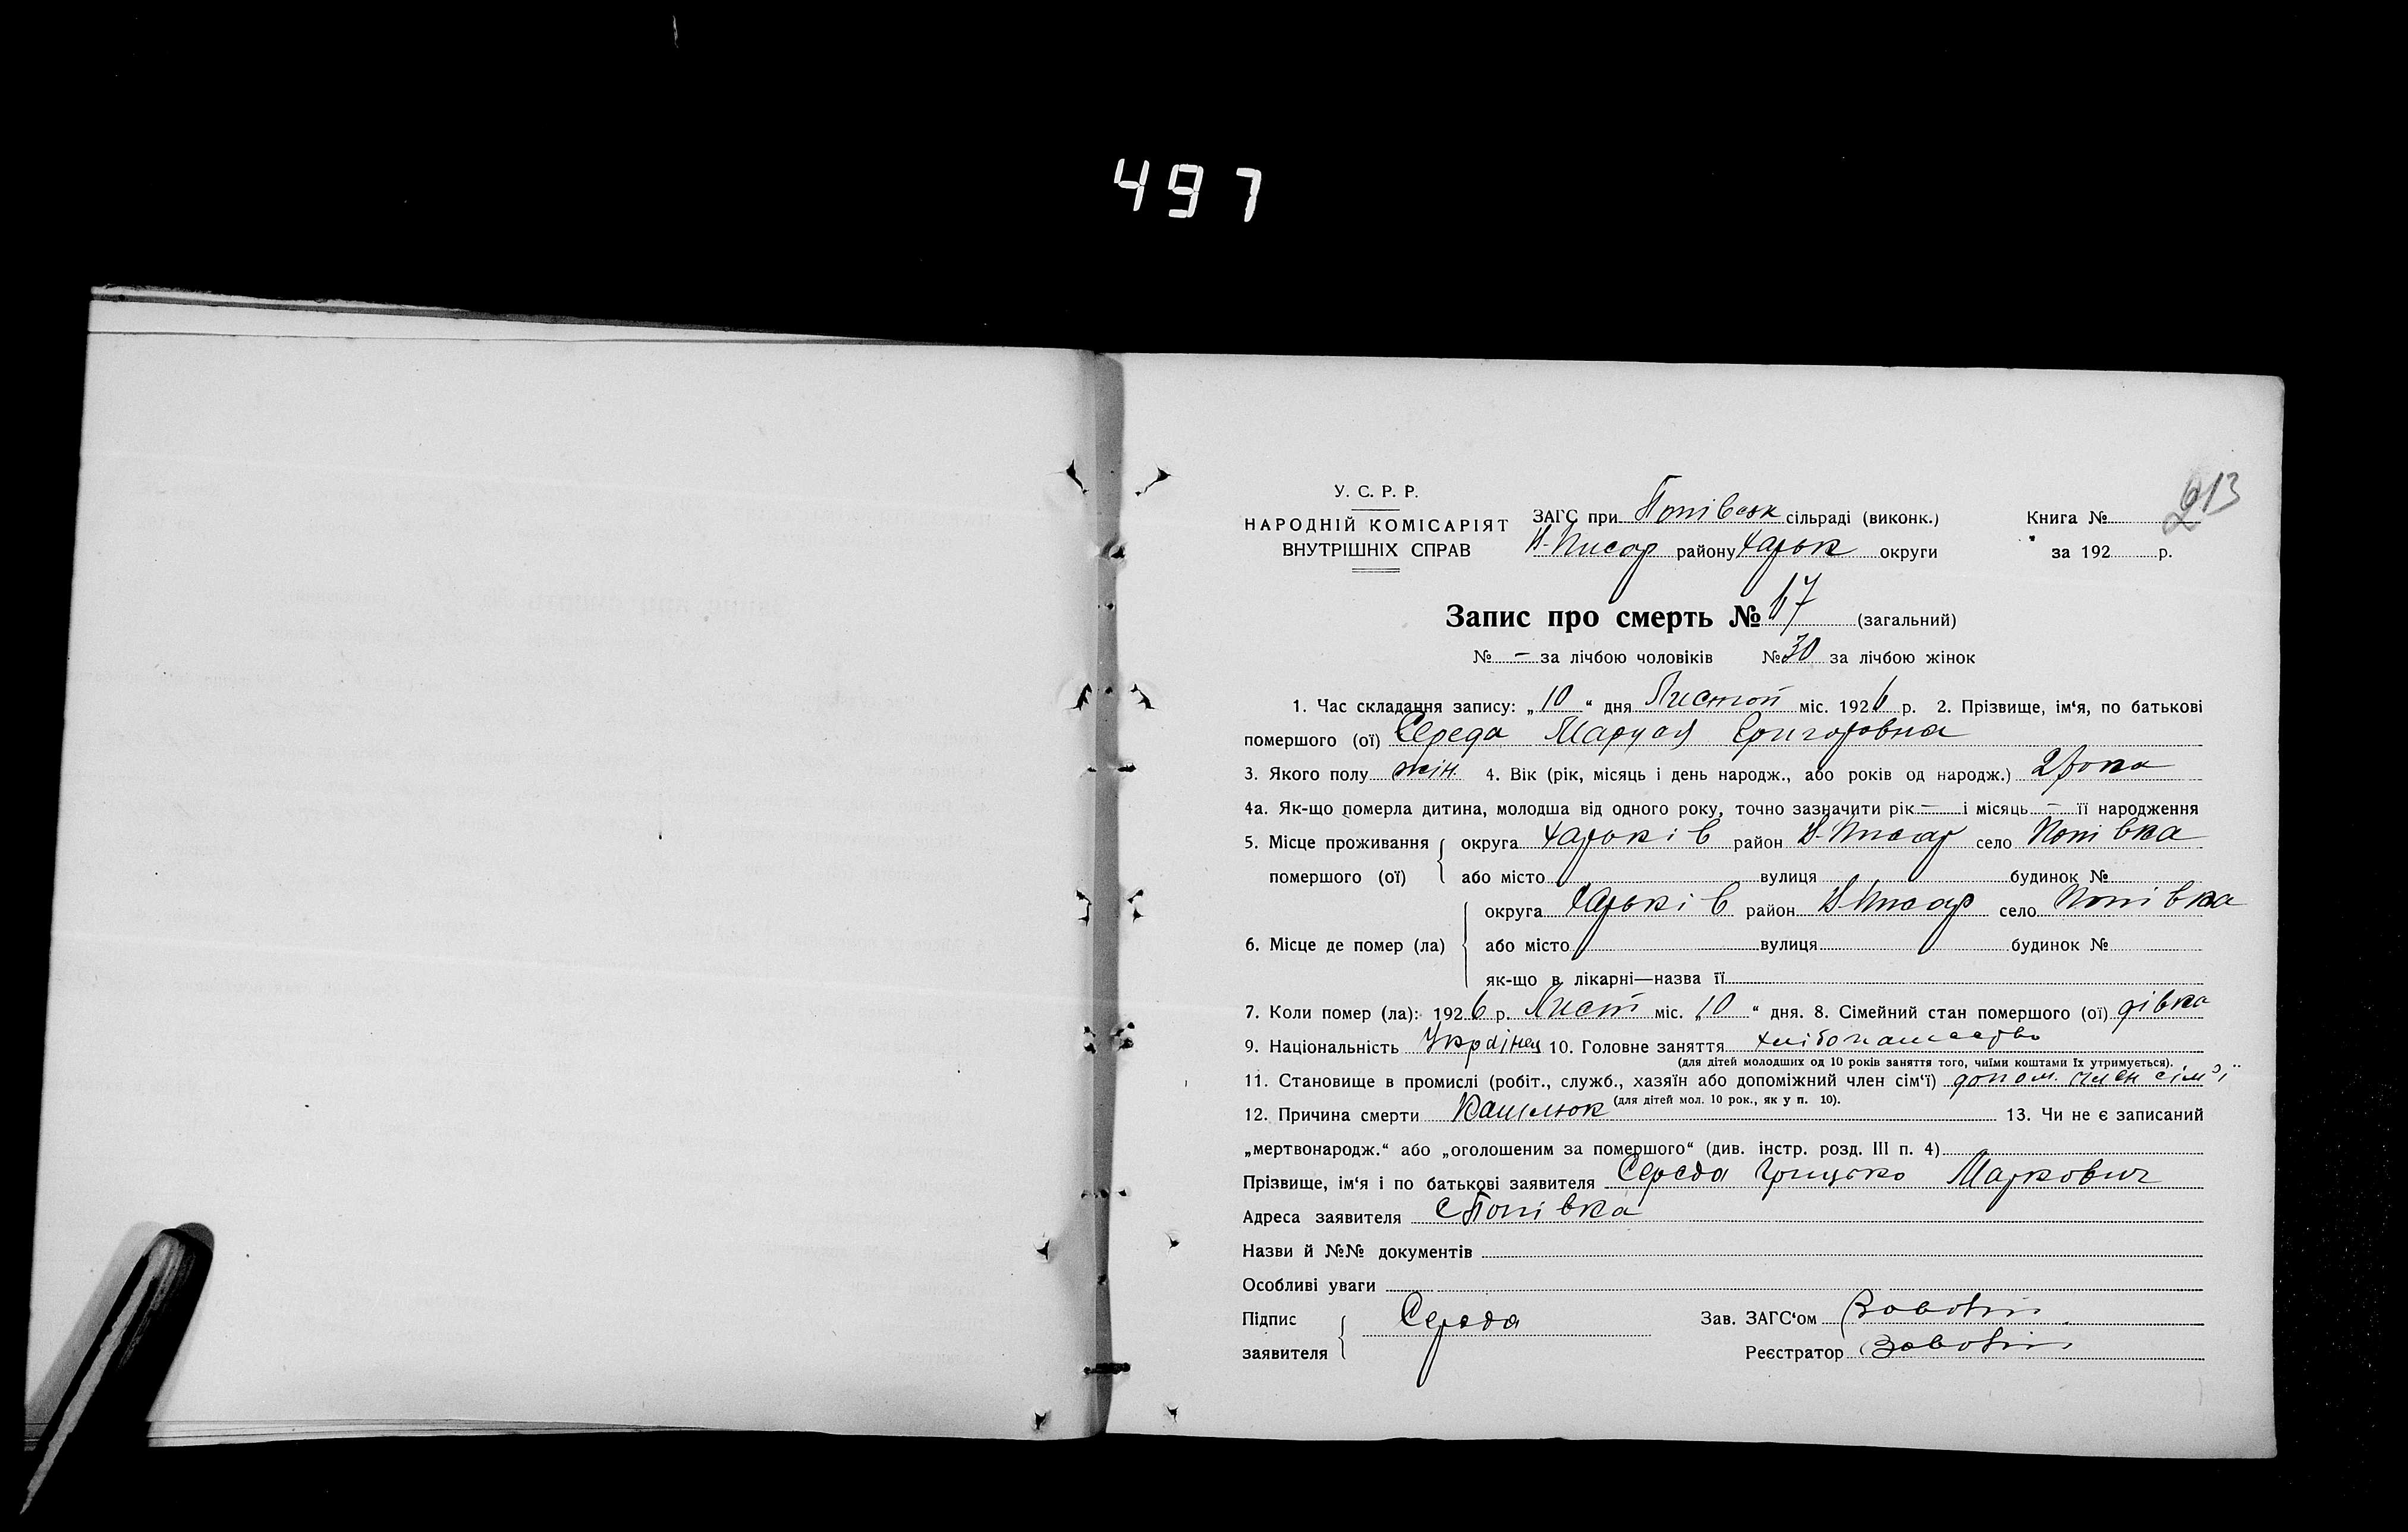 497
213
У. С. Р. Р.
НАРОДНІЙ КОМІСАРІЯТ
ВНУТРІШНІХ СПРАВ
ЗАГС при Попівськ сільраді (виконк.)
Н-Писар району Харьк округи
Книга №
за 192 р.
Запис про смерть № 67 (загальний)
№ — за лічбою чоловіків № 30 за лічбою жінок
1. Час складання запису: „10“ дня Листоп міс. 1926 р. 2. Прізвище, ім‘я, по батькові
помершого (ої) Середа Маруся Григоровна
3. Якого полу жін. 4. Вік (рік, місяць і день народж., або років од народж.) 2 рока
4а. Як-що померла дитина, молодша від одного року, точно зазначити рік — і місяць — її народження
5. Місце проживання помершого (ої) { округа Харьків район Н-Писар село Попівка
або місто вулиця будинок №
6. Місце де помер (ла) { округа Харьків район Н-Писар село Попівка
або місто вулиця будинок №
як-що в лікарні—назва її
7. Коли помер (ла): 1926 р. Лист міс. „10“ дня. 8. Сімейний стан помершого (ої) дівка
9. Національність Українец 10. Головне заняття хлібопашество
(для дітей молодших од 10 років заняття того, чиїми коштами їх утримується).
11. Становище в промислі (робіт., служб., хазяїн або допоміжний член сім‘ї) допом. член сім'ї
(для дітей мол. 10 рок., як у п. 10).
12. Причина смерти Кашлюк 13. Чи не є записаний
„мертвонародж.“ або „оголошеним за помершого“ (див. інстр. розд. III п. 4)
Прізвище, ім‘я і по батькові заявителя Середа Грицько Маркович
Адреса заявителя с Попівка
Назви й №№ документів
Особливі уваги
Підпис заявителя { Середа
Зав. ЗАГС‘ом
Реєстратор